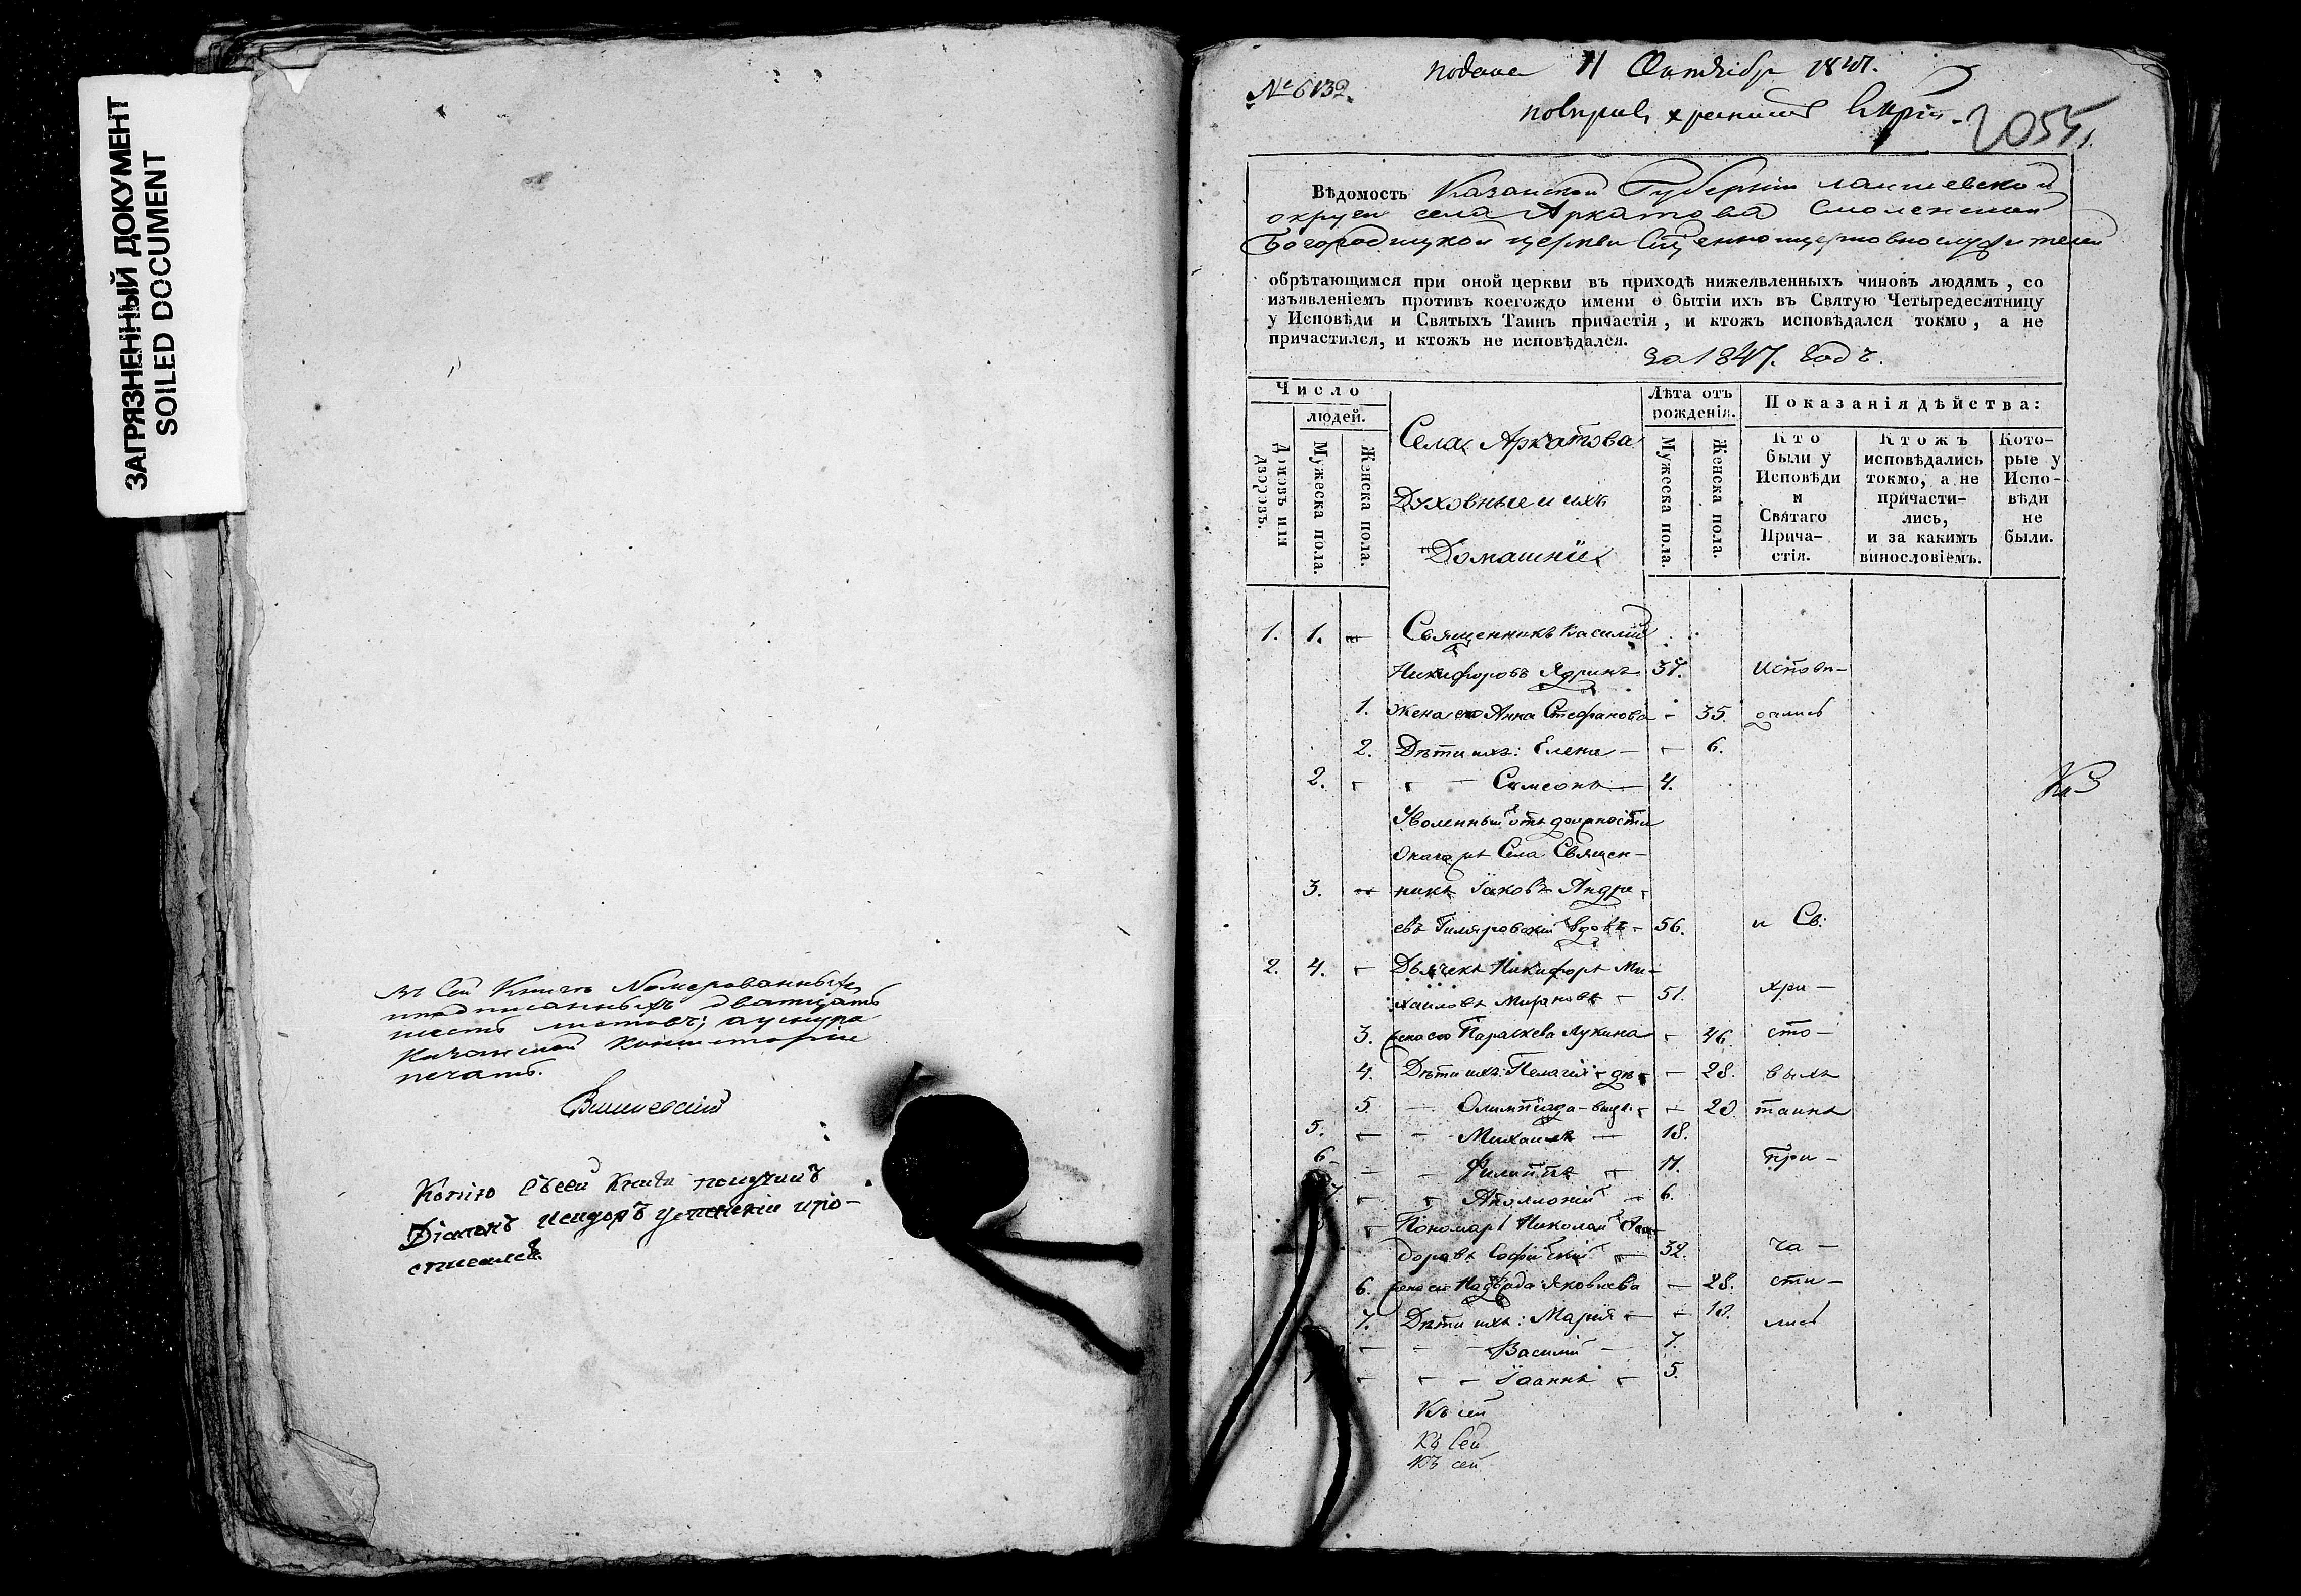 ЗАГРЯЗНЕННЫЙ ДОКУМЕНТ
SOILED DOCUMENT
Въ сей Книгѣ Номерованныхъ
и подписанныхъ дватцать
шесть листовъ; а у снура
Казанской Консисторіи
печать.
Копію съ сей книги получилъ
Діаконъ Исидоръ
№ 6132.
подана 11 Октября 1847.
2055.
Вѣдомость Казанской Губерніи Лаишевской
округи села Аркатова Смоленской
Богородицкой церкви Священноцерковнослужителей
обрѣтающимся при оной церкви въ приходѣ нижеявленныхъ чиновъ людямъ, со
изъявленіемъ противъ коегождо имени о бытіи ихъ въ Святую Четыредесятницу
у Исповѣди и Святыхъ Таинъ причастія, и ктожъ исповѣдался токмо, а не
причастился, и ктожъ не исповѣдался.
за 1847. годъ.
Число
людей.
Домовъ или дворовъ.
Мужеска пола.
Женска пола.
Села Аркатова
Духовные и ихъ
Домашніе
Лѣта отъ рожденія.
Мужеска пола.
Женска пола.
Показанія дѣйства:
Кто были у Исповѣди и Святаго Прича-стія.
Ктожъ исповѣдались токмо, а не причасти-лись, и за какимъ винословіемъ.
Кото-рые у Испо-вѣди не были.
1. 1. — Священникъ Василій
Никифоровъ Ядринъ 37. Исповѣ-
1. Жена его Анна Стефанова - 35. дались
2. Дѣти ихъ: Елена — - 6.
2. - - - Симеонъ — 4.
Уволенный отъ должности
онаго жъ Села Священ-
3. — никъ Іаковъ Андре-
евъ Гиляровскій вдовъ - 56. и Св:
2. 4. - Дьячекъ Никифоръ Ми-
хаиловъ Мироновъ - 51. хри-
3. жена его Параскева Лукина - 46. сто-
4. Дѣти ихъ: Пелагія - 28. выхъ
5. — Олимпіада - 20. таинъ
5. - - Михаилъ — 18.
6. - - Филиппъ - 11. При-
7. - - Аполлоній - 6.
- Пономарь Николай
32. ча-
6. жена его Надежда Яковлева — 28. сти-
7. Дѣти ихъ: Марія - - 10. лись
- - - Василій - 7.
- - - Іоаннъ - 5.
Къ сей
Къ сей
Къ сей